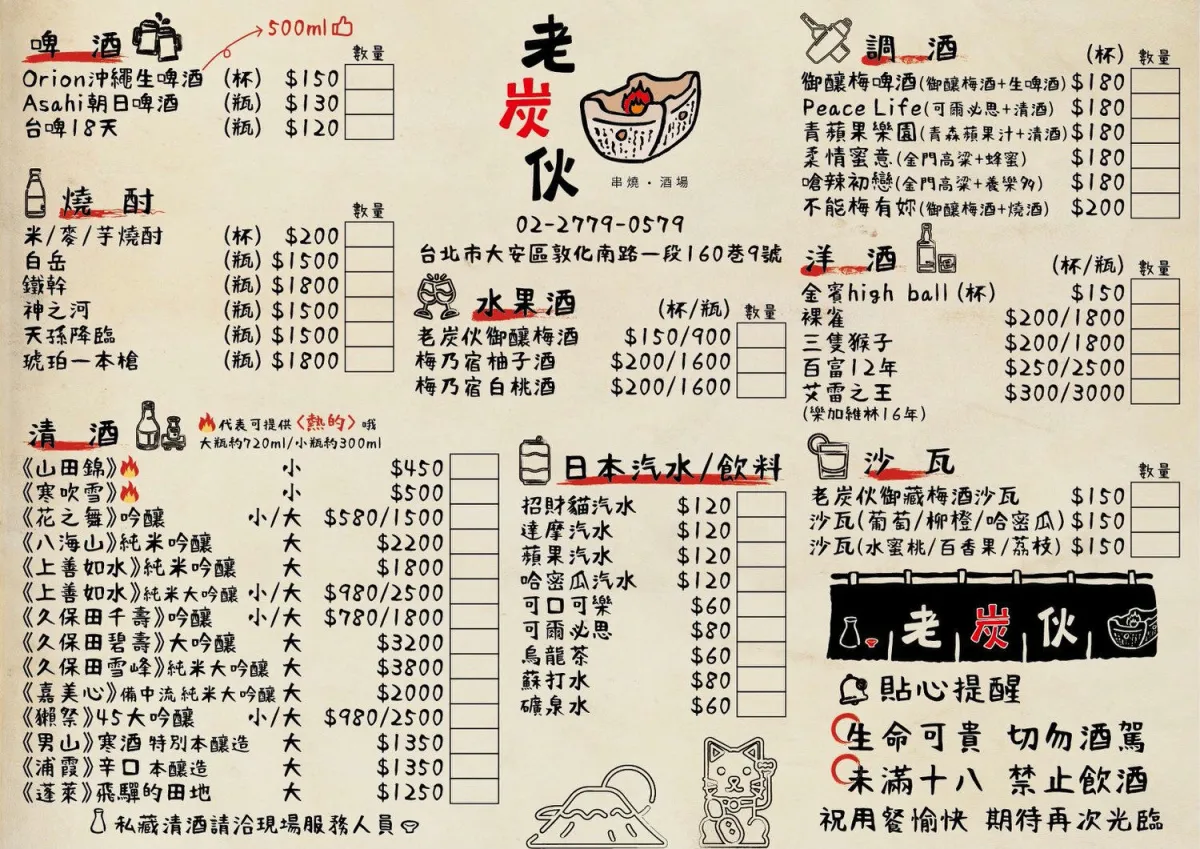 啤 酒
500ml
數量
Orion沖繩生啤酒 (杯) $150
Asahi朝日啤酒 (瓶) $130
台啤18天 (瓶) $120
燒 酎
數量
米/麥/芋燒酎 (杯) $200
白岳 (瓶) $1500
鐵幹 (瓶) $1800
神之河 (瓶) $1500
天孫降臨 (瓶) $1500
琥珀一本槍 (瓶) $1800
清 酒
代表可提供〈熱的〉哦
大瓶約720ml/小瓶約300ml
《山田錦》 小 $450
《寒吹雪》 小 $500
《花之舞》吟釀 小/大 $580/1500
《八海山》純米吟釀 大 $2200
《上善如水》純米吟釀 大 $1800
《上善如水》純米大吟釀 小/大 $980/2500
《久保田千壽》吟釀 小/大 $780/1800
《久保田碧壽》大吟釀 大 $3200
《久保田雪峰》純米大吟釀 大 $3800
《嘉美心》備中流 純米大吟釀 大 $2000
《獺祭》45大吟釀 小/大 $980/2500
《男山》寒酒 特別本釀造 大 $1350
《浦霞》辛口 本釀造 大 $1350
《蓬萊》飛驒的田地 大 $1250
私藏清酒請洽現場服務人員
老
炭
伙
串燒・酒場
02-2779-0579
台北市大安區敦化南路一段160巷9號
水果酒 (杯/瓶) 數量
老炭伙御釀梅酒 $150/900
梅乃宿柚子酒 $200/1600
梅乃宿白桃酒 $200/1600
日本汽水/飲料
招財貓汽水 $120
達摩汽水 $120
蘋果汽水 $120
哈密瓜汽水 $120
可口可樂 $60
可爾必思 $80
烏龍茶 $60
蘇打水 $80
礦泉水 $60
調 酒 (杯) 數量
御釀梅啤酒(御釀梅酒+生啤酒) $180
Peace Life(可爾必思+清酒) $180
青蘋果樂園(青森蘋果汁+清酒) $180
柔情蜜意(金門高粱+蜂蜜) $180
嗆辣初戀(金門高粱+養樂多) $180
不能梅有妳(御釀梅酒+燒酒) $200
洋 酒 (杯/瓶) 數量
金賓high ball (杯) $150
裸雀 $200/1800
三隻猴子 $200/1800
百富12年 $250/2500
艾雷之王 $300/3000
(樂加維林16年)
沙 瓦 數量
老炭伙御藏梅酒沙瓦 $150
沙瓦(葡萄/柳橙/哈密瓜) $150
沙瓦(水蜜桃/百香果/荔枝) $150
老 炭 伙
貼心提醒
生命可貴 切勿酒駕
未滿十八 禁止飲酒
祝用餐愉快 期待再次光臨